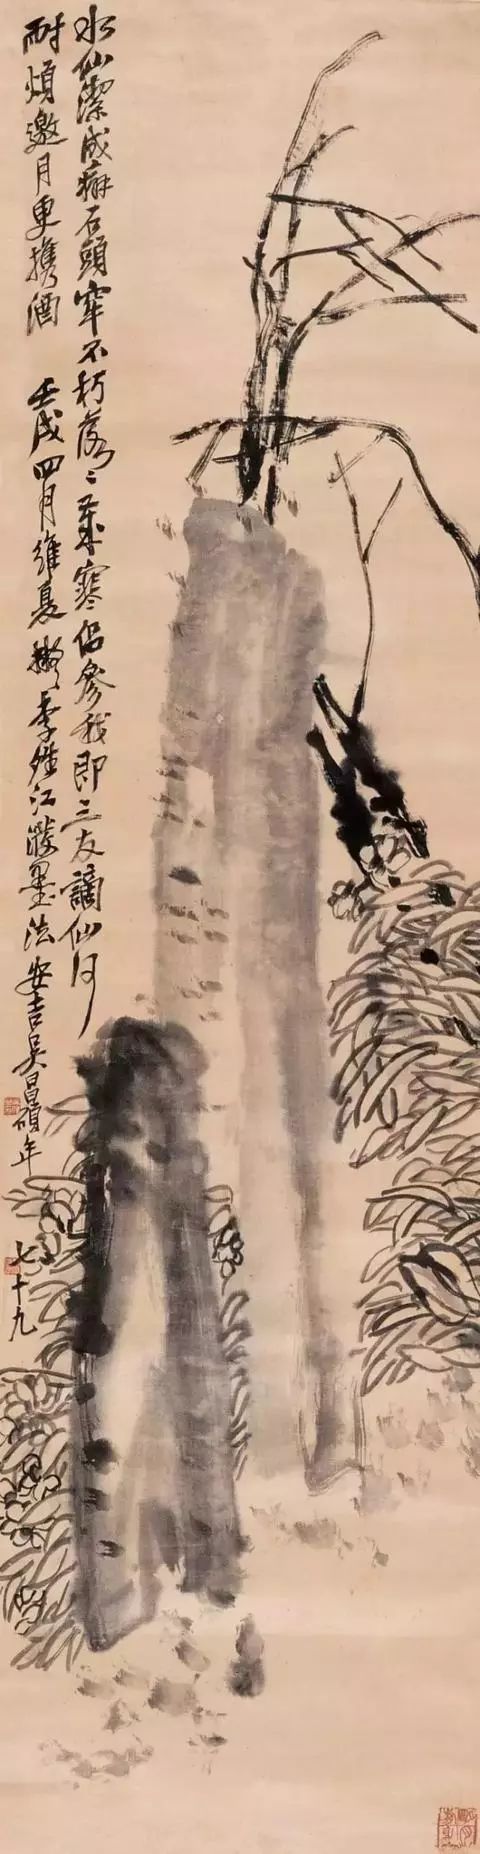 水仙潔成癖石頭窂不朽落〻歲寒侶參我即三友謫仙何
耐煩邀月更攜酒　壬戌四月維夏擬李㷩江潑墨法安吉吳昌碩年
七十九